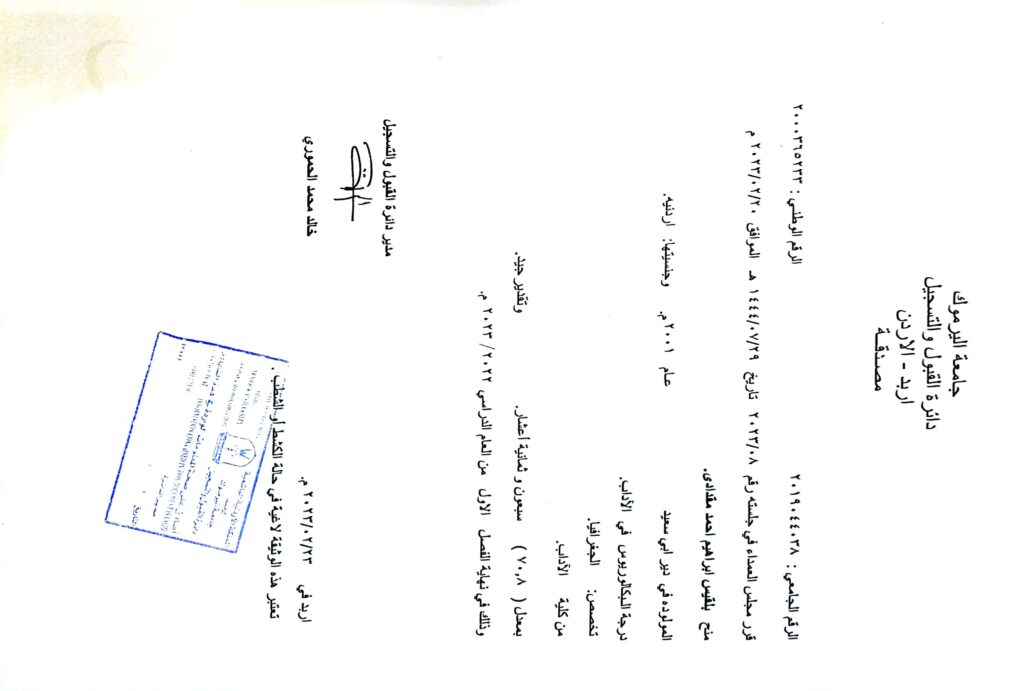 جامعة اليرموك
دائرة القبول والتسجيل
اربد - الاردن
مصدقة
الرقم الجامعي : ٢٠١٩٠٤٤٠٣٨ الرقم الوطني : ٢٠٠٠٣٦٥٢٣٣
قرر مجلس العمداء في جلسته رقم ٢٠٢٣/٠٨ تاريخ ١٤٤٤/٠٧/٢٩ هـ الموافق ٢٠٢٣/٠٢/٢٠ م
منح بلقيس ابراهيم احمد مقدادى.
المولوده في دير ابي سعيد عام ٢٠٠١ م. وجنسيتها: اردنيه.
درجة البكالوريوس في الآداب.
تخصص: الجغرافيا.
من كلية الآداب.
بمعدل ( ٧٠,٨ ) سبعون و ثمانية أعشار. وتقدير جيد.
وذلك في نهاية الفصل الاول من العام الدراسي ٢٠٢٢/ ٢٠٢٣ م.
مدير دائرة القبول والتسجيل
خالد محمد الحموري
اربد في ٢٠٢٣/٠٢/٢٣ م.
تعتبر هذه الوثيقة لاغية في حالة الكشط أو الشطب .